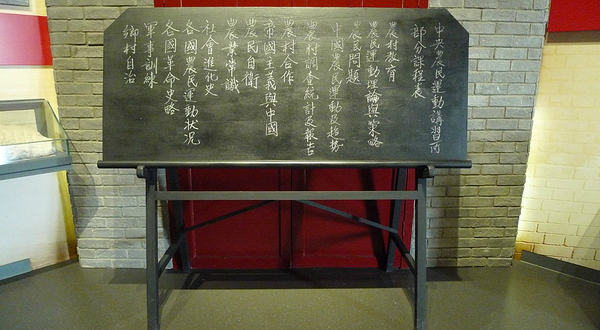 中央農民運動講習所
部分課程表
農村教育
農民運動理論與策略
農民問題
中國農民運動及趨勢
農村調查統計及報告
農村合作
帝國主義與中國
農民自衛
農業常識
社會進化史
各國農民運動狀况
各國革命史略
軍事訓練
鄉村自治